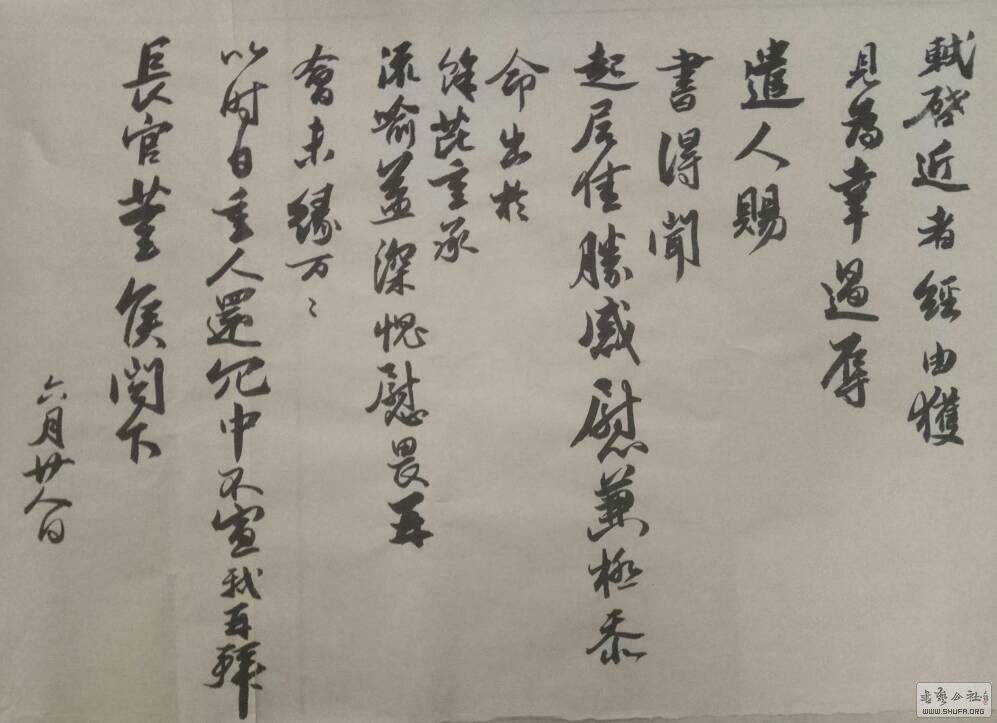 軾啓近者經由獲
見為幸過辱
遣人賜
書得聞
起居佳勝感慰兼極忝
命出於
餘芘重承
流喻益深愧慰畏再
會未緣万〻
以时自重人還冗中不宣軾再拜
長官董侯閣下
六月廿八日
書藝公社
WWW.SHUFA.ORG